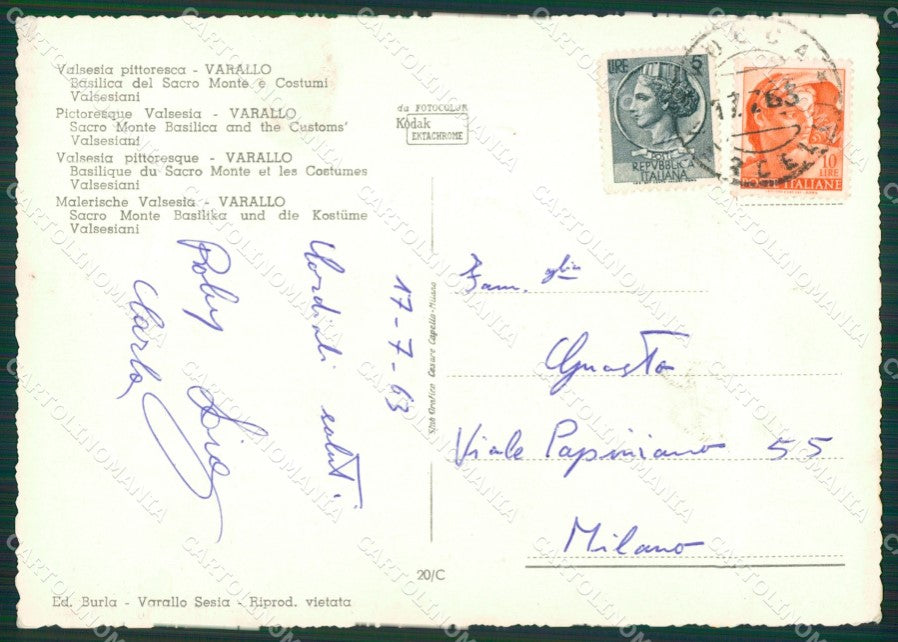 Valsesia pittoresca - VARALLO
Basilica del Sacro Monte e Costumi
Valsesiani
Pictoresque Valsesia - VARALLO
Sacro Monte Basilica and the Customs'
Valsesiani
Valsesia pittoresque - VARALLO
Basilique du Sacro Monte et les Costumes
Valsesiani
Malerische Valsesia - VARALLO
Sacro Monte Basilika und die Kostüme
Valsesiani
da FOTOCOLOR
Kodak
EKTACHROME
LIRE 5
REPVBBLICA
ITALIANA
10
LIRE
ITALIANE
17-7-63
Cordiali saluti
Carla,
Fam. glia
Guasto
Viale Papiniano 55
Milano
Stab. Grafico Cesare Capello-Milano
20/C
Ed. Burla - Varallo Sesia - Riprod. vietata
CARTOLINOMANIA